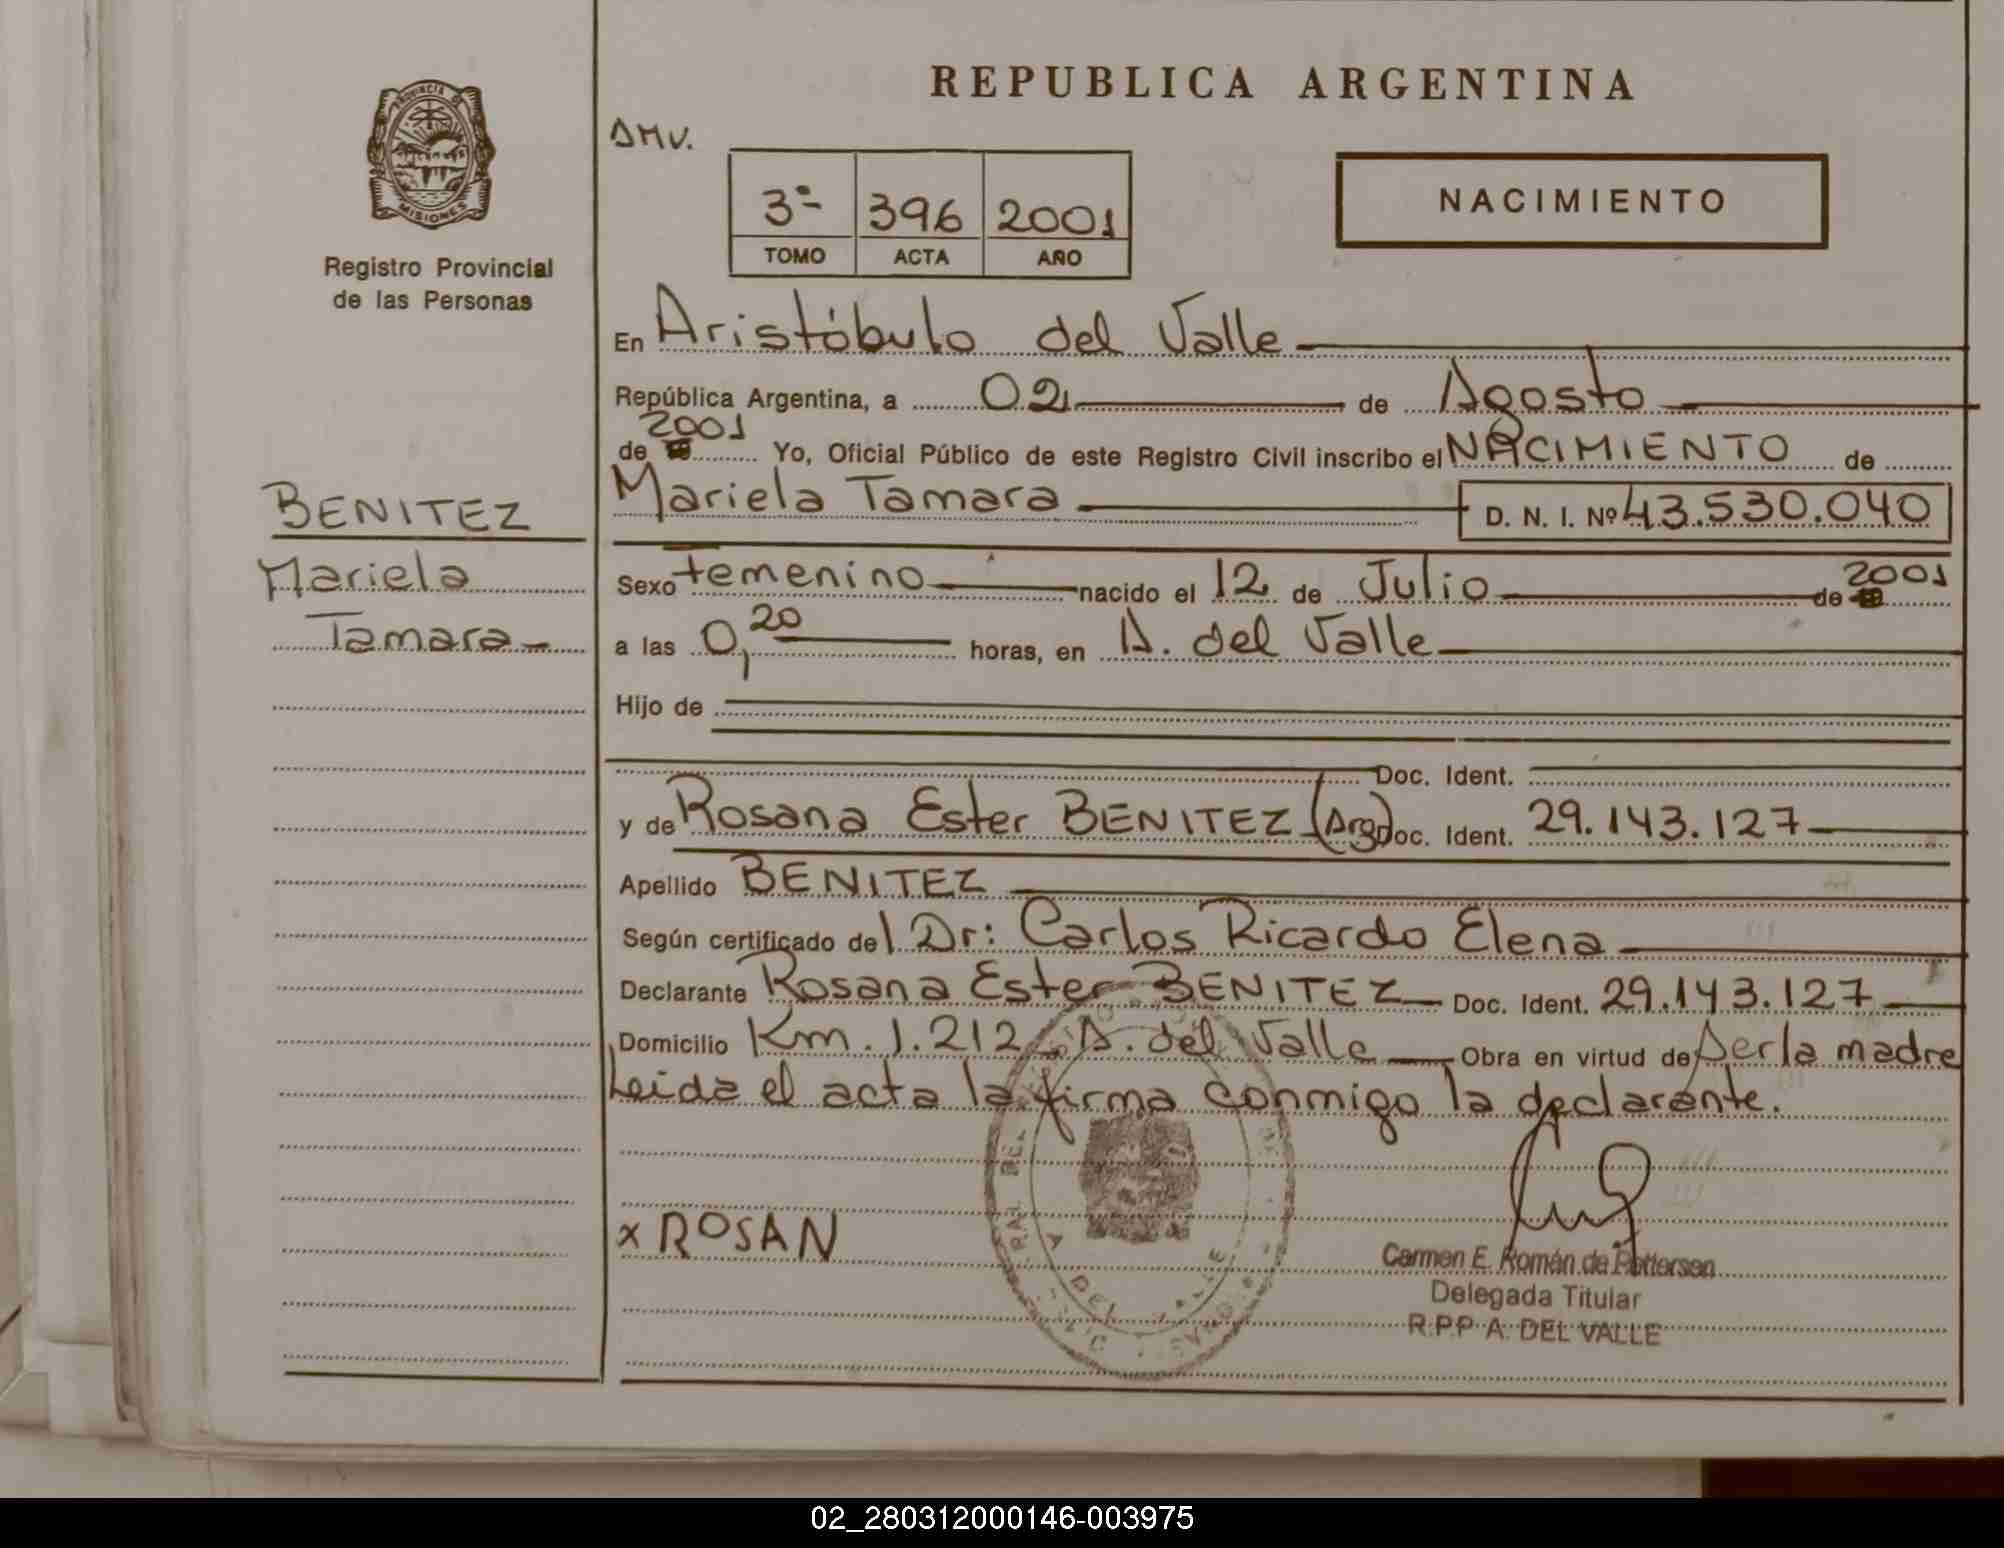 PROVINCIA DE
MISIONES
Registro Provincial
de las Personas
BENITEZ
Mariela
Tamara
REPUBLICA ARGENTINA
AMV.
3º 396 2001
TOMO ACTA AÑO
NACIMIENTO
En Aristóbulo del Valle
República Argentina, a 02 de Agosto
de 2001 Yo, Oficial Público de este Registro Civil inscribo el NACIMIENTO de
Mariela Tamara D. N. I. Nº 43.530.040
Sexo femenino nacido el 12 de Julio de 2001
a las 0,20 horas, en A. del Valle
Hijo de
Doc. Ident.
y de Rosana Ester BENITEZ (Arg) Doc. Ident. 29.143.127
Apellido BENITEZ
Según certificado del Dr: Carlos Ricardo Elena
Declarante Rosana Ester BENITEZ Doc. Ident. 29.143.127
Domicilio Km. 1.212 A. del Valle Obra en virtud de Ser la madre
Leída el acta la firma conmigo la declarante.
x ROSAN
A DEL VALLE
Carmen E. Román de Pettersen
Delegada Titular
R.P.P. A. DEL VALLE
02_280312000146-003975